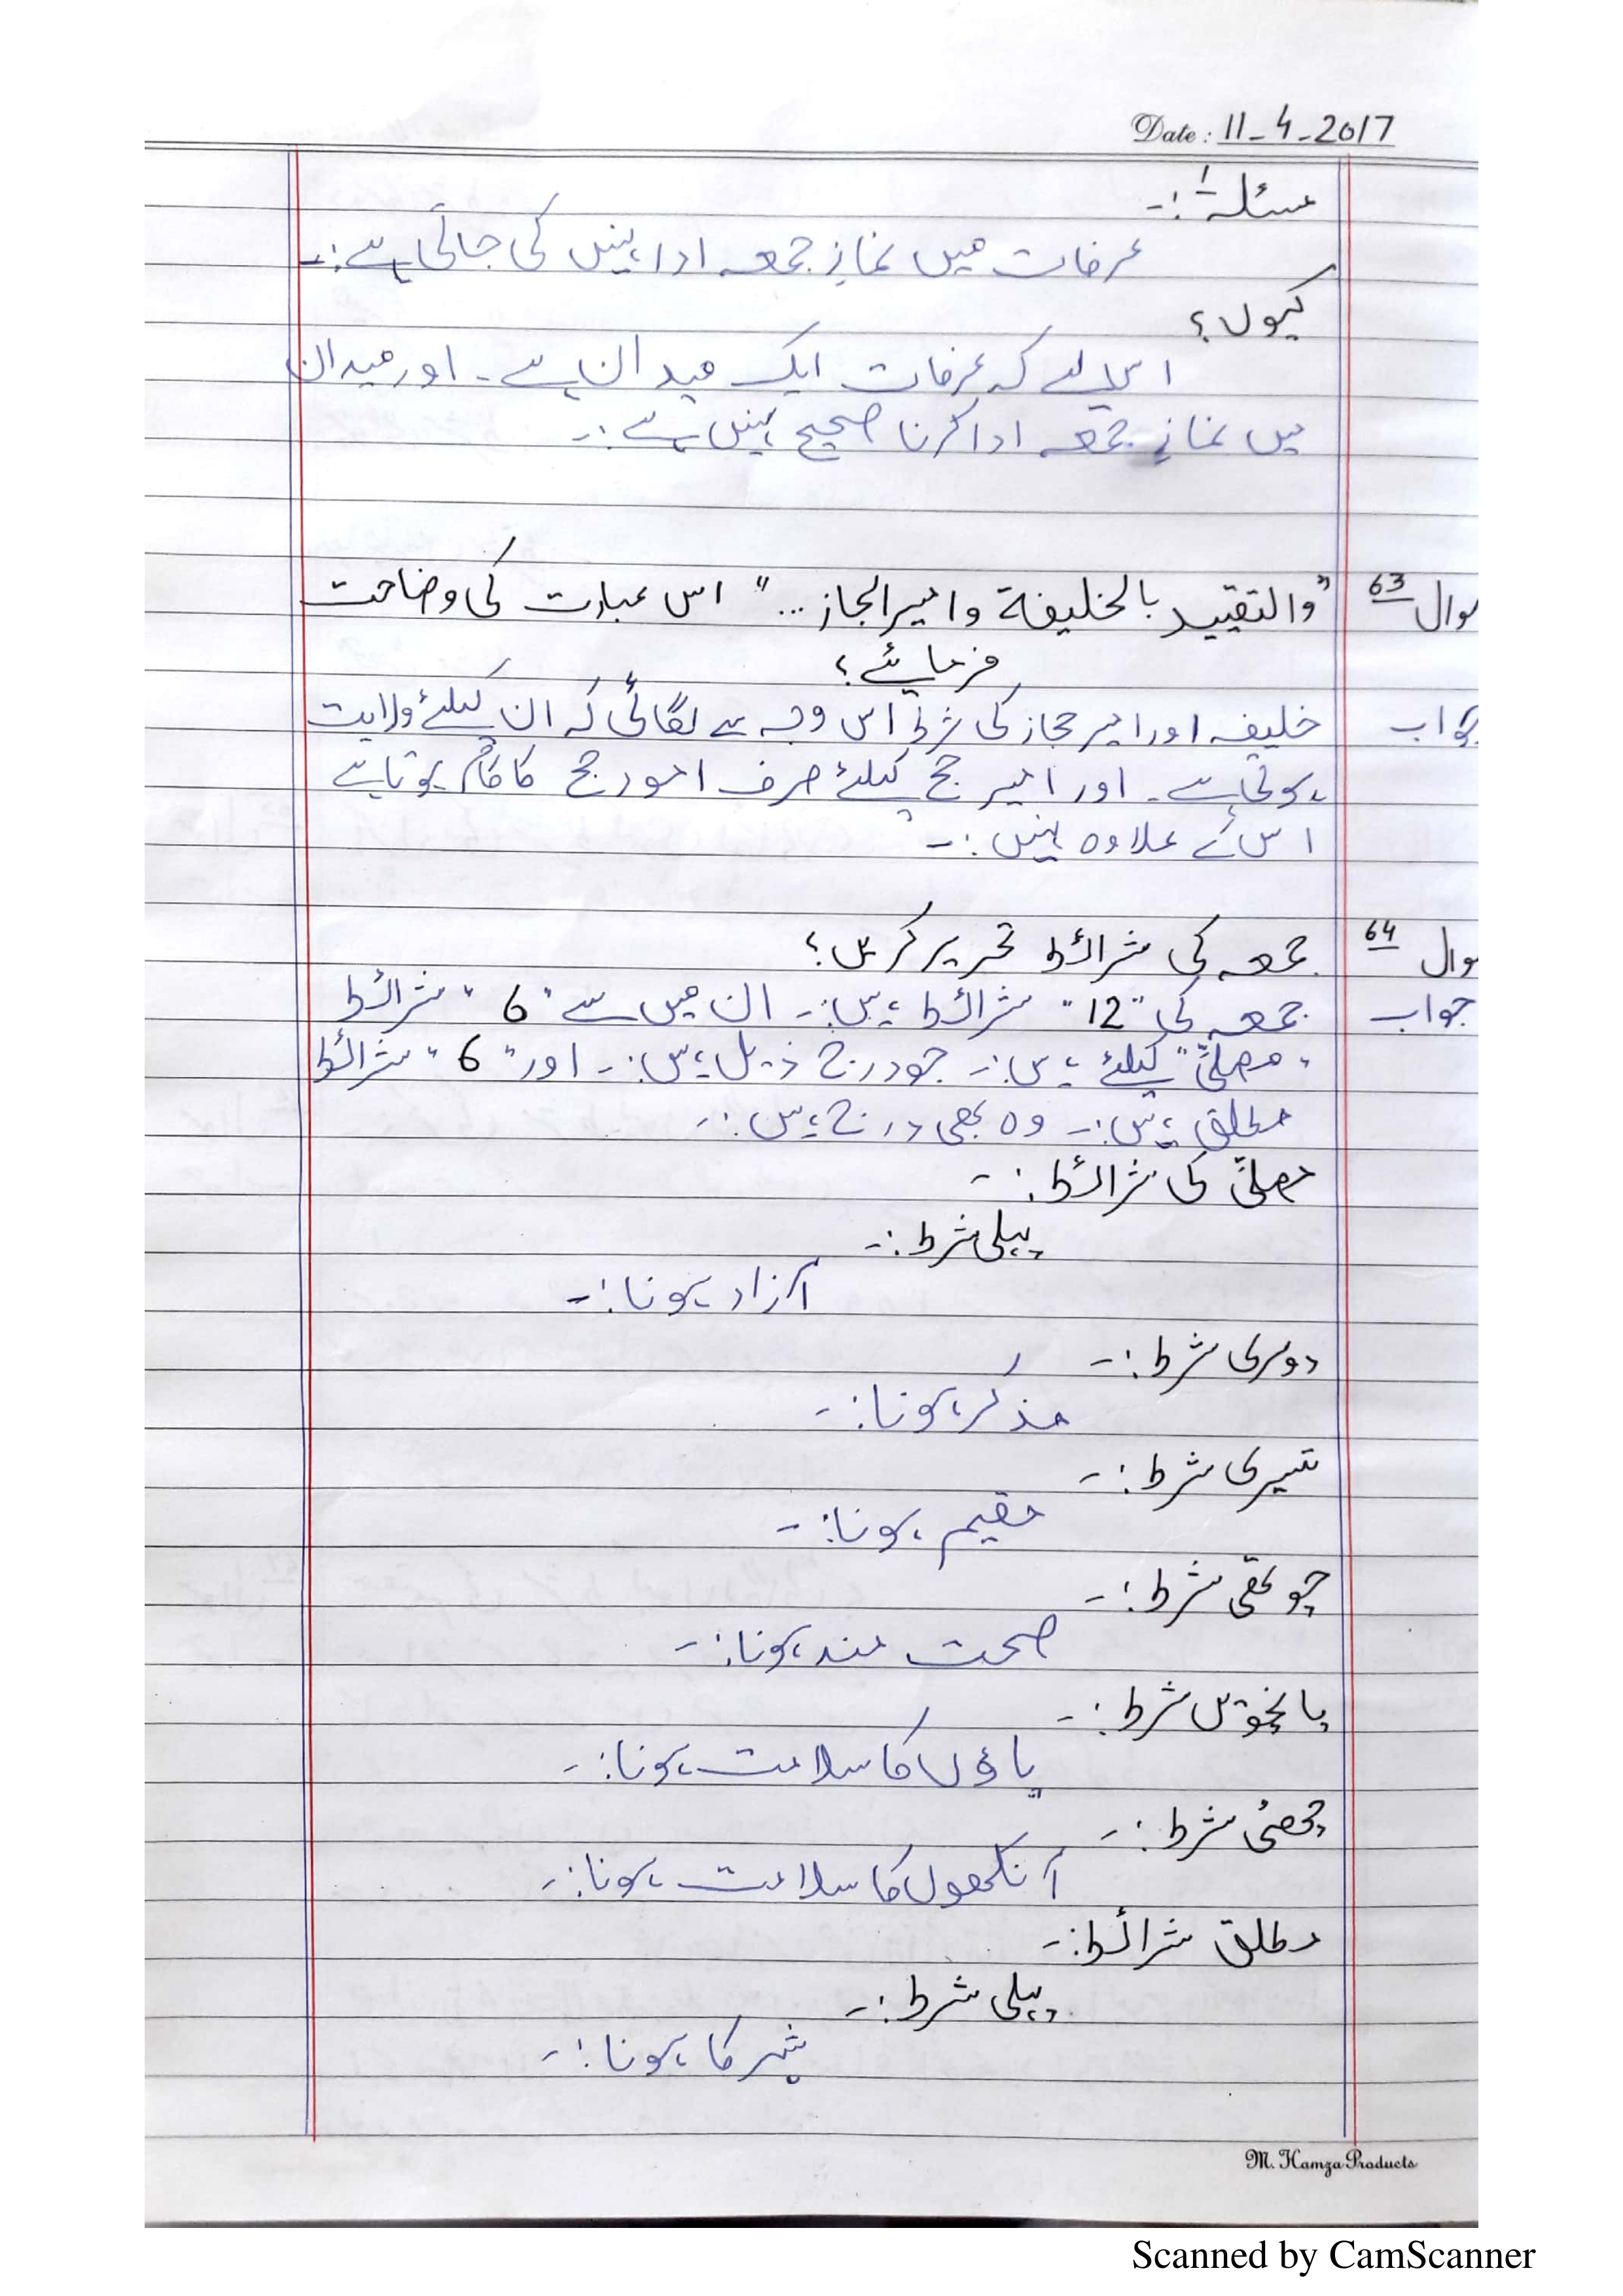 Date: 11-4-2017
مسئلہ ۱:-
عرفات میں نمازِ جمعہ ادا نہیں کی جاتی ہے:-
کیوں؟
اس لئے کہ عرفات ایک میدان ہے۔ اور میدان
میں نمازِ جمعہ ادا کرنا صحیح نہیں ہے:-
سوال 63 "والتقیید بالخلیفة وامیر الحجاز..." اس عبارت کی وضاحت
فرمائیے؟
جواب خلیفہ اور امیر حجاز کی شرط اس وجہ سے لگائی کہ ان کیلئے ولایت
ہوتی ہے۔ اور امیر حج کیلئے صرف امور حج کا کام ہوتا ہے
اس کے علاوہ نہیں:-
سوال 64 جمعہ کی شرائط تحریر کریں؟
جواب جمعہ کی "12" شرائط ہیں:- ان میں سے "6" شرائط
"مصلّی" کیلئے ہیں:- جو درج ذیل ہیں:- اور "6" شرائط
مطلق ہیں:- وہ بھی درج ہیں:-
مصلّی کی شرائط:-
پہلی شرط:-
آزاد ہونا:-
دوسری شرط:-
مذکر ہونا:-
تیسری شرط:-
مقیم ہونا:-
چوتھی شرط:-
صحت مند ہونا:-
پانچویں شرط:-
پاؤں کا سلامت ہونا:-
چھٹی شرط:-
آنکھوں کا سلامت ہونا:-
مطلق شرائط:-
پہلی شرط:-
شہر کا ہونا:-
M. Hamza Products
Scanned by CamScanner